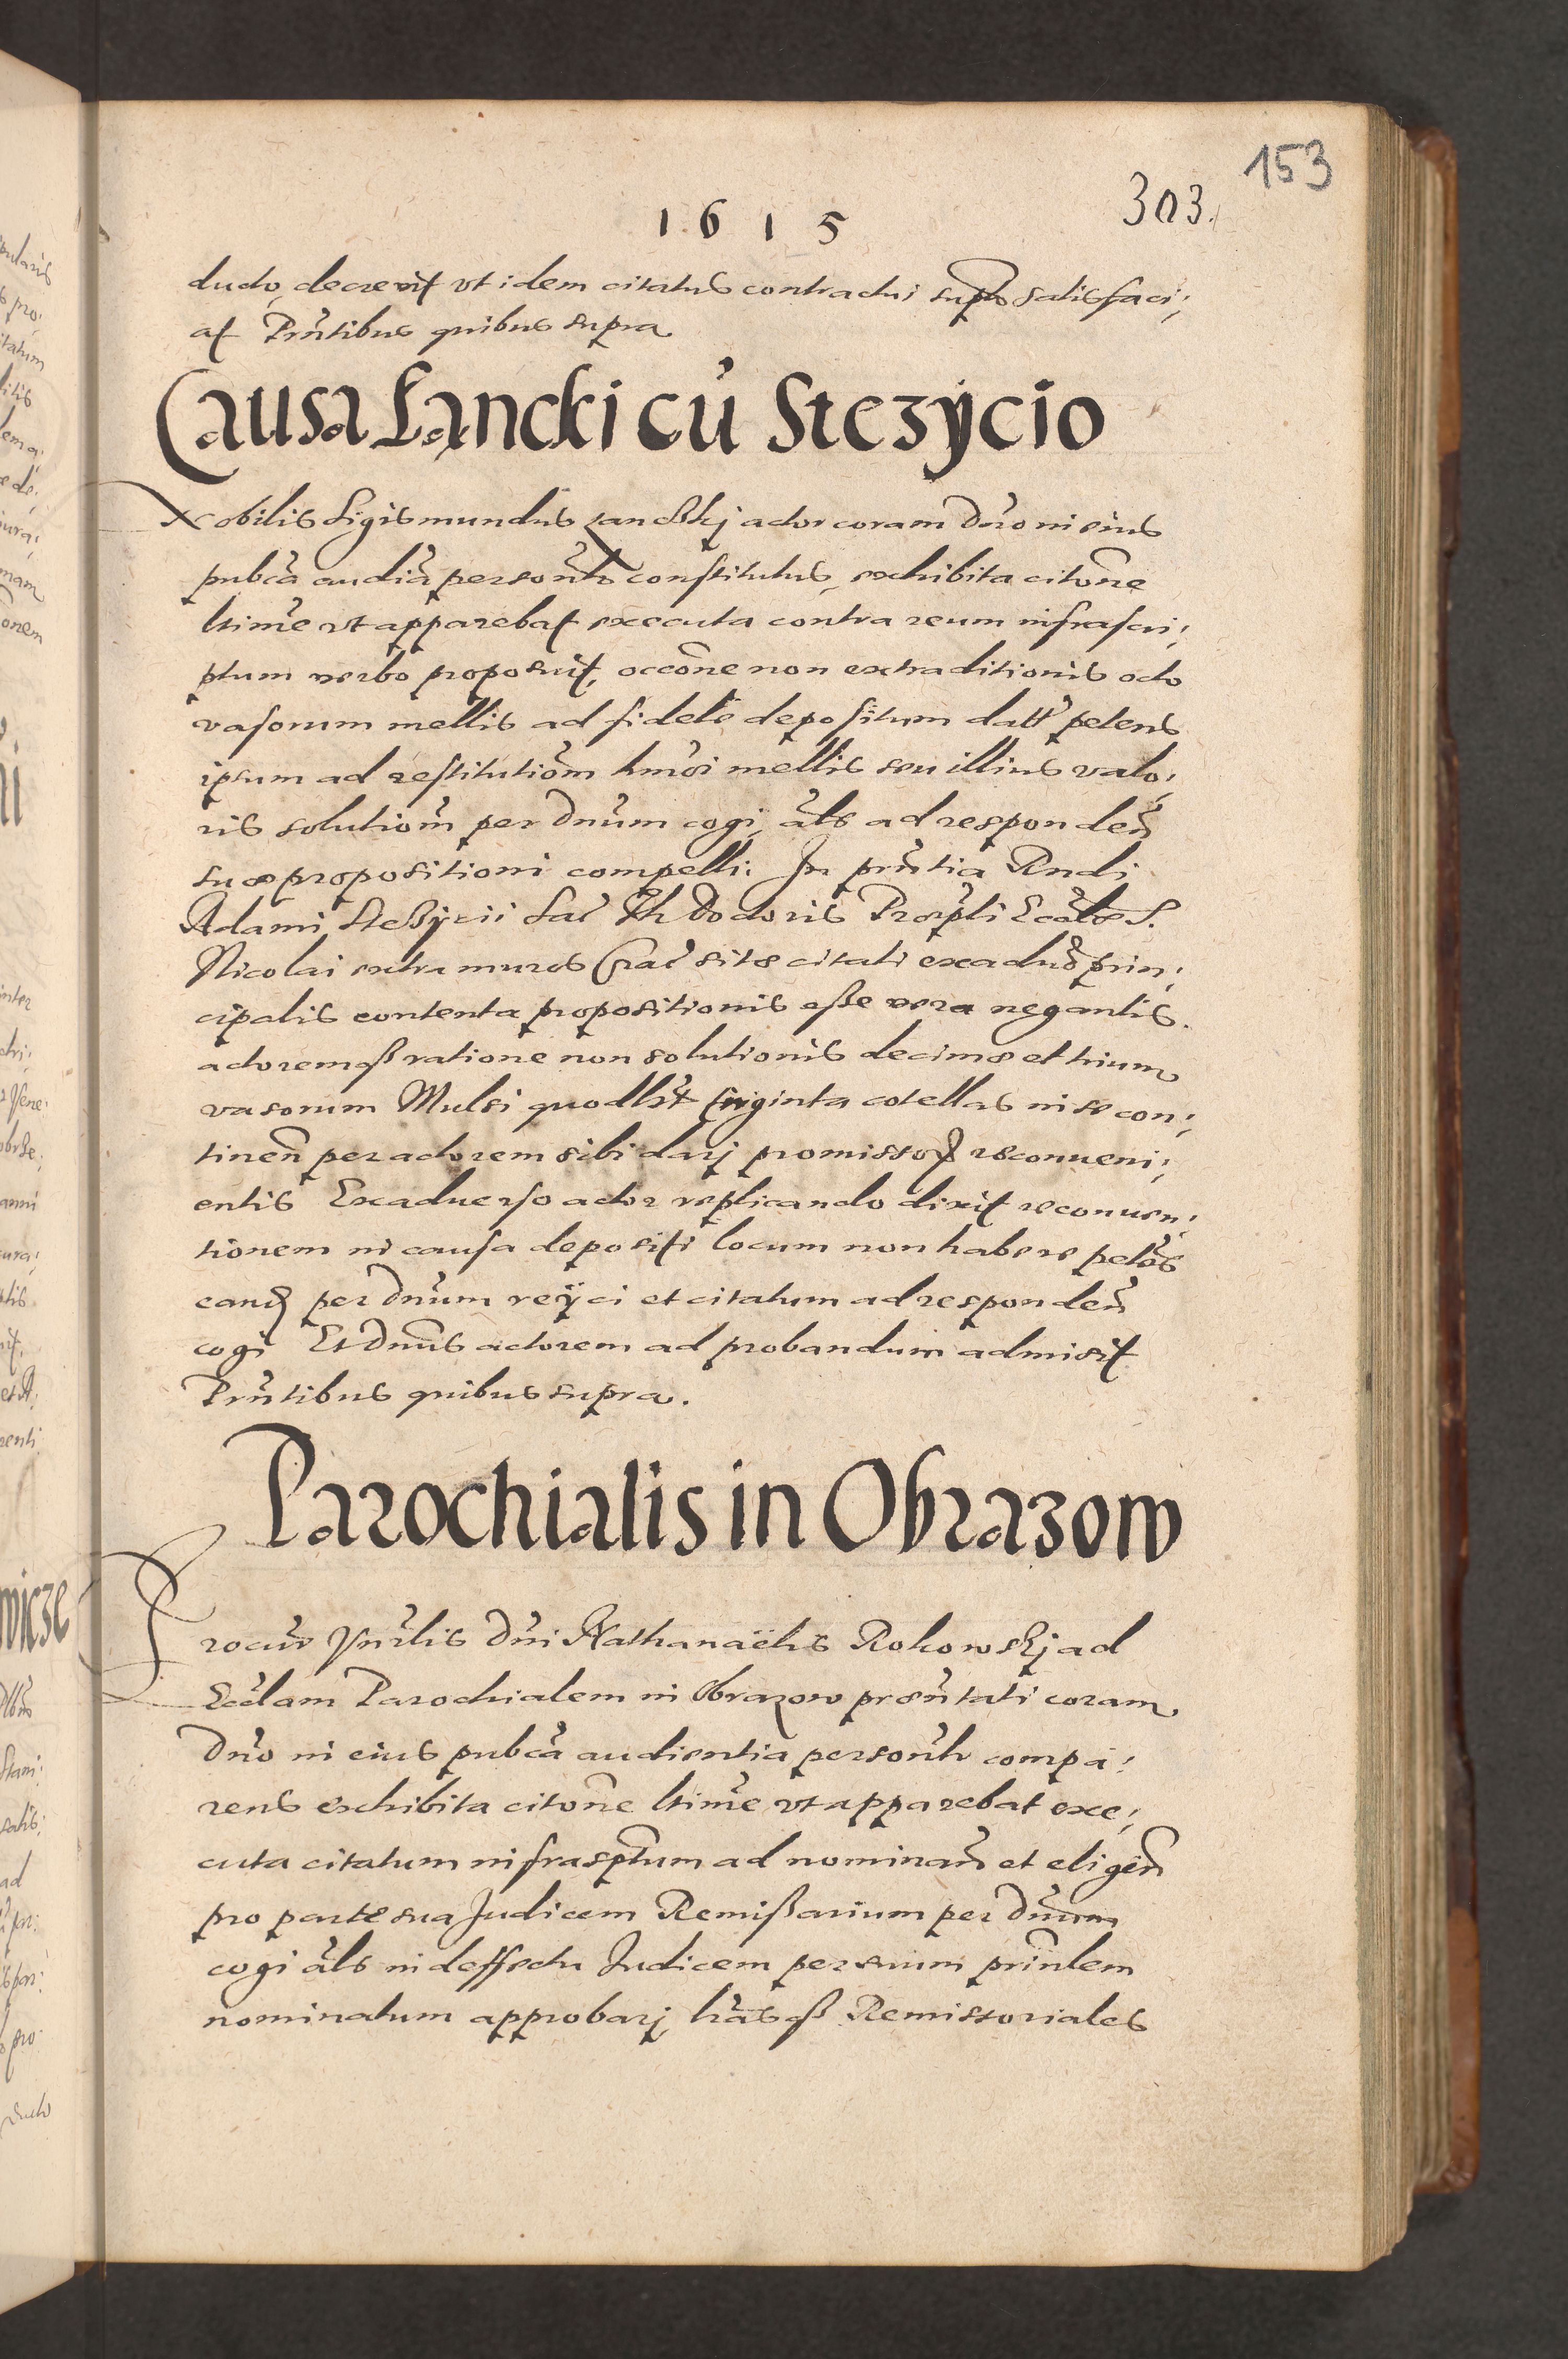 153
303.
1615
ducto, decrevit vt idem citatus contractui suplo satisfaci;
at Prñtibus quibus supra
Causa Łancki cũ Stezÿcio
Nobilis Sigismundus Łanckj actor coram Dño in eius
pubca audia persoñlr constitutus, exhibita citoñe
ltime vt apparebat executa contra reum infrascri;
ptum verbo proposuit, occoñe non extraditionis octo
vasorum mellis ad fidele depositum datt petens
ipsum ad restitutiom hmoi mellis seu illius valo;
ris solutiom per Dnum cogi, als ad responden
suæ propositioni compelli. In prñtia Rndi
Adami Steßycii Sac Th Doctoris Præpti Eccliæ S.
Nicolai extra muros Crac sitæ citati ex aduo prin;
cipalis contenta propositionis esse vera negantis.
actoremqß ratione non solutionis decimæ et trium
vasorum Mulsi quodlibet triginta cotellas in se con;
tinen per actorem sibi darj promissoꝝ reconueni;
entis Exaduerso actor replicando dixit reconuen;
tionem in causa depositi locum non habere petens
eand per Dnum reÿci et citatum ad responden
cogi Et Dnus actorem ad probandum admisit
Prñtibus quibus supra.
Parochialis in Obrazow
Procur Vnrlis Dni Nathanaëlis Rokowskj ad
Ecclam Parochialem in Obrazow præntati coram
Dño in eius pubca audientia persoñlr compa;
rens exhibita citoñe ltime vt apparebat exe;
cuta citatum infrasptum ad nominan et eligen
pro parte sua Judicem Remißarium per Dnum
cogi als in deffectu Judicem per suum prinlem
nominatum approbarj, lrasqß Remissoriales